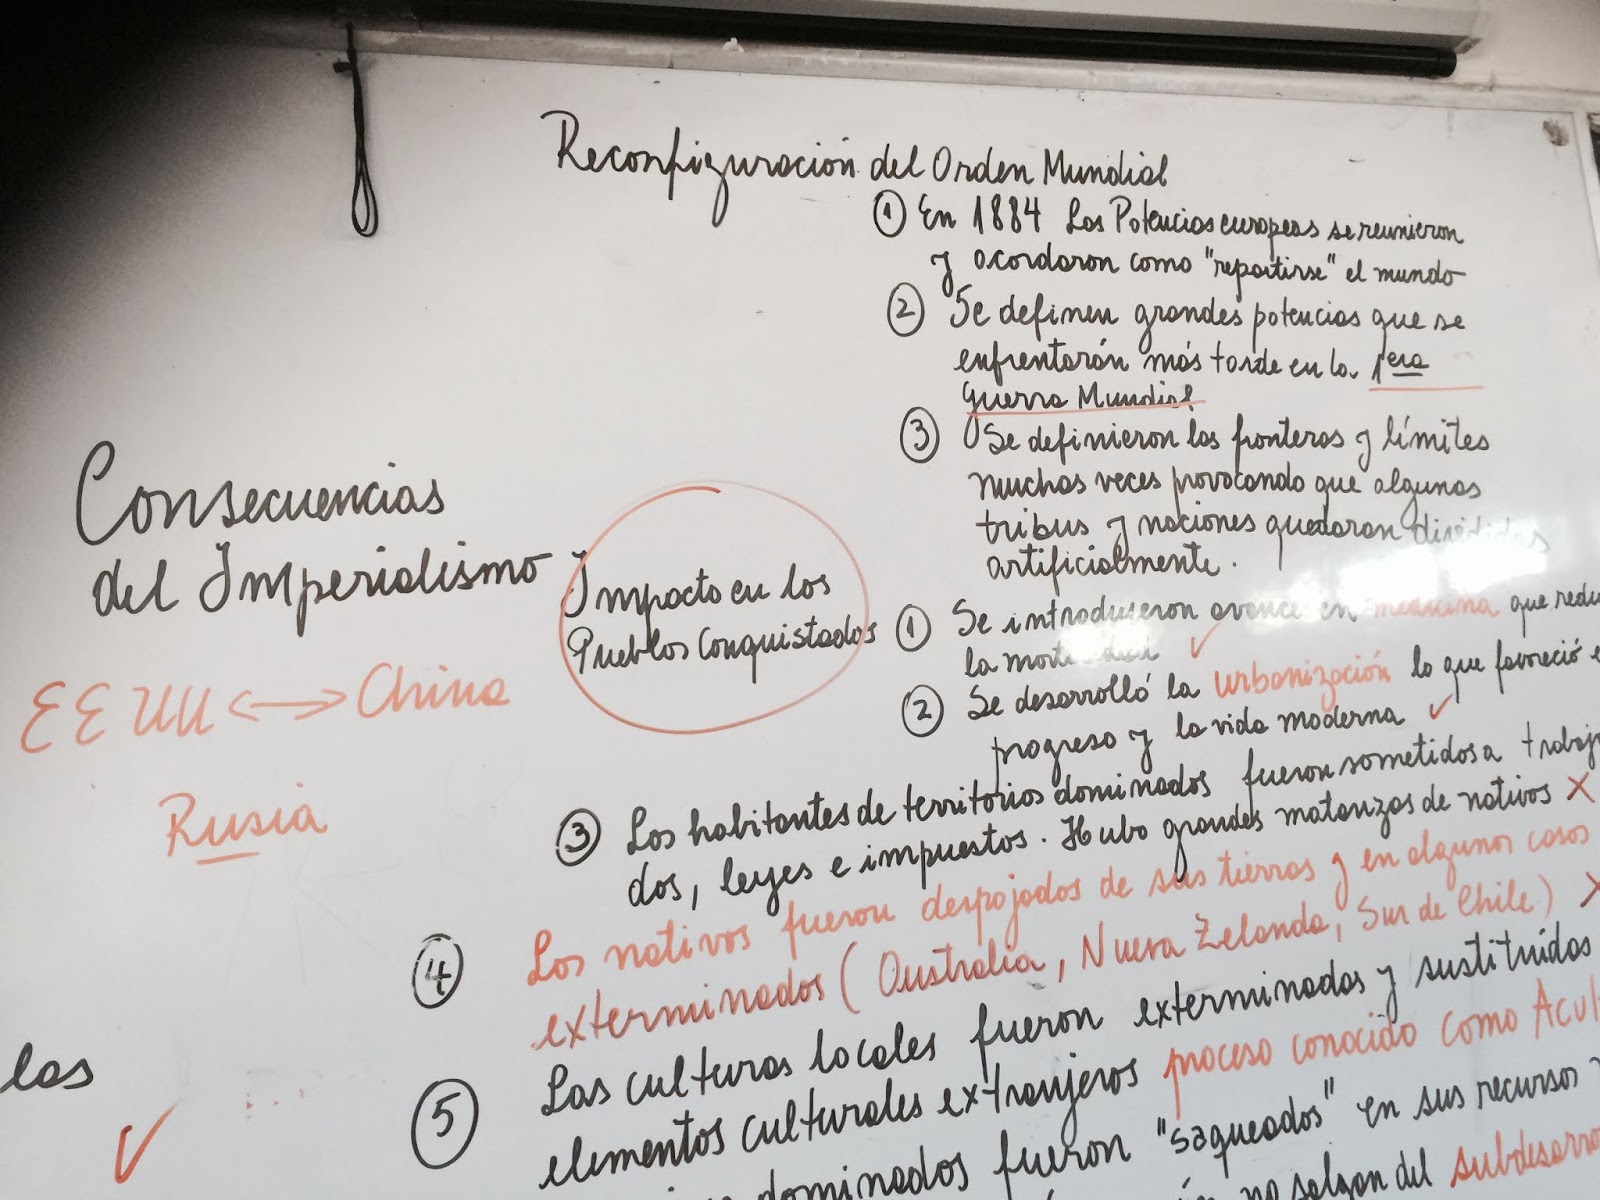 Reconfiguración del Orden Mundial
① En 1884 Las Potencias europeas se reunieron
y acordaron como "repartirse" el mundo
② Se definen grandes potencias que se
enfrentarán más tarde en la 1era
Guerra Mundial
③ Se definieron las fronteras y límites
muchas veces provocando que algunas
tribus y naciones quedaran divididas
artificialmente.
Consecuencias
del Imperialismo
EEUU <-> China
Rusia
Impacto en los
Pueblos Conquistados
① Se introdujeron avances en medicina que redu
la
② Se desarrolló la urbanización lo que favoreció e
progreso y la vida moderna ✓
③ Los habitantes de territorios dominados fueron sometidos a trabaj
dos, leyes e impuestos. Hubo grandes matanzas de nativos X
④ Los nativos fueron despojados de sus tierras y en algunos casos
exterminados (Australia, Nueva Zelanda, Sur de Chile) X
⑤ Las culturas locales fueron exterminadas y sustituidas
elementos culturales extranjeros proceso conocido como Acul
dominados fueron "saqueados" en sus recursos
no salgan del subdesarro
las
✓